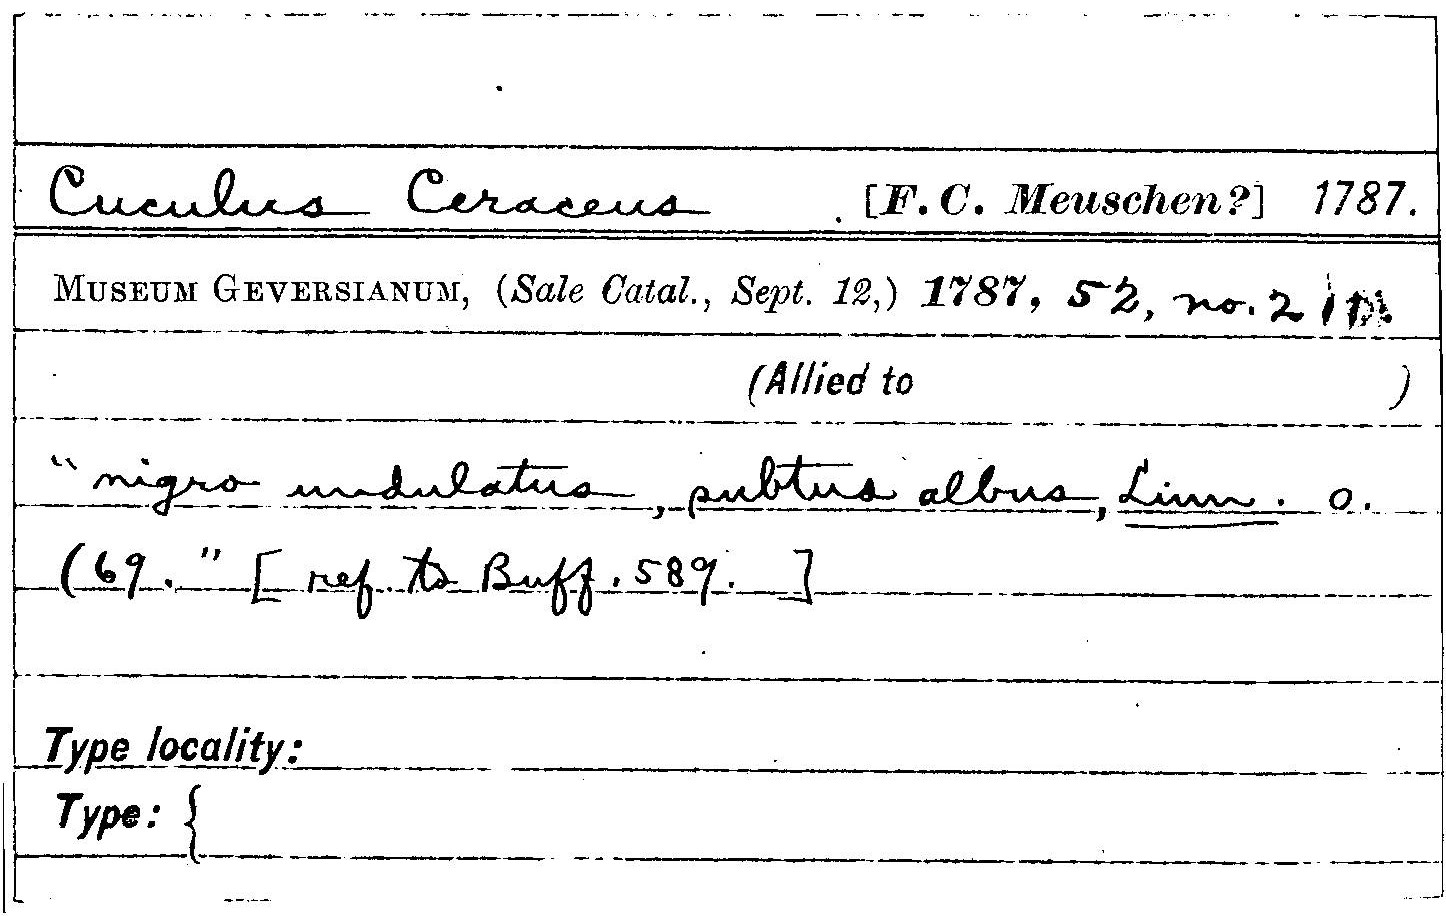 Cuculus Ceraceus [F. C. Meuschen?] 1787.
MUSEUM GEVERSIANUM, (Sale Catal., Sept. 12,) 1787, 52, no. 2
(Allied to )
"nigro undulatus, subtus albus, Linn. o.
(69." [ref. to Buff. 589. ]
Type locality:
Type: {